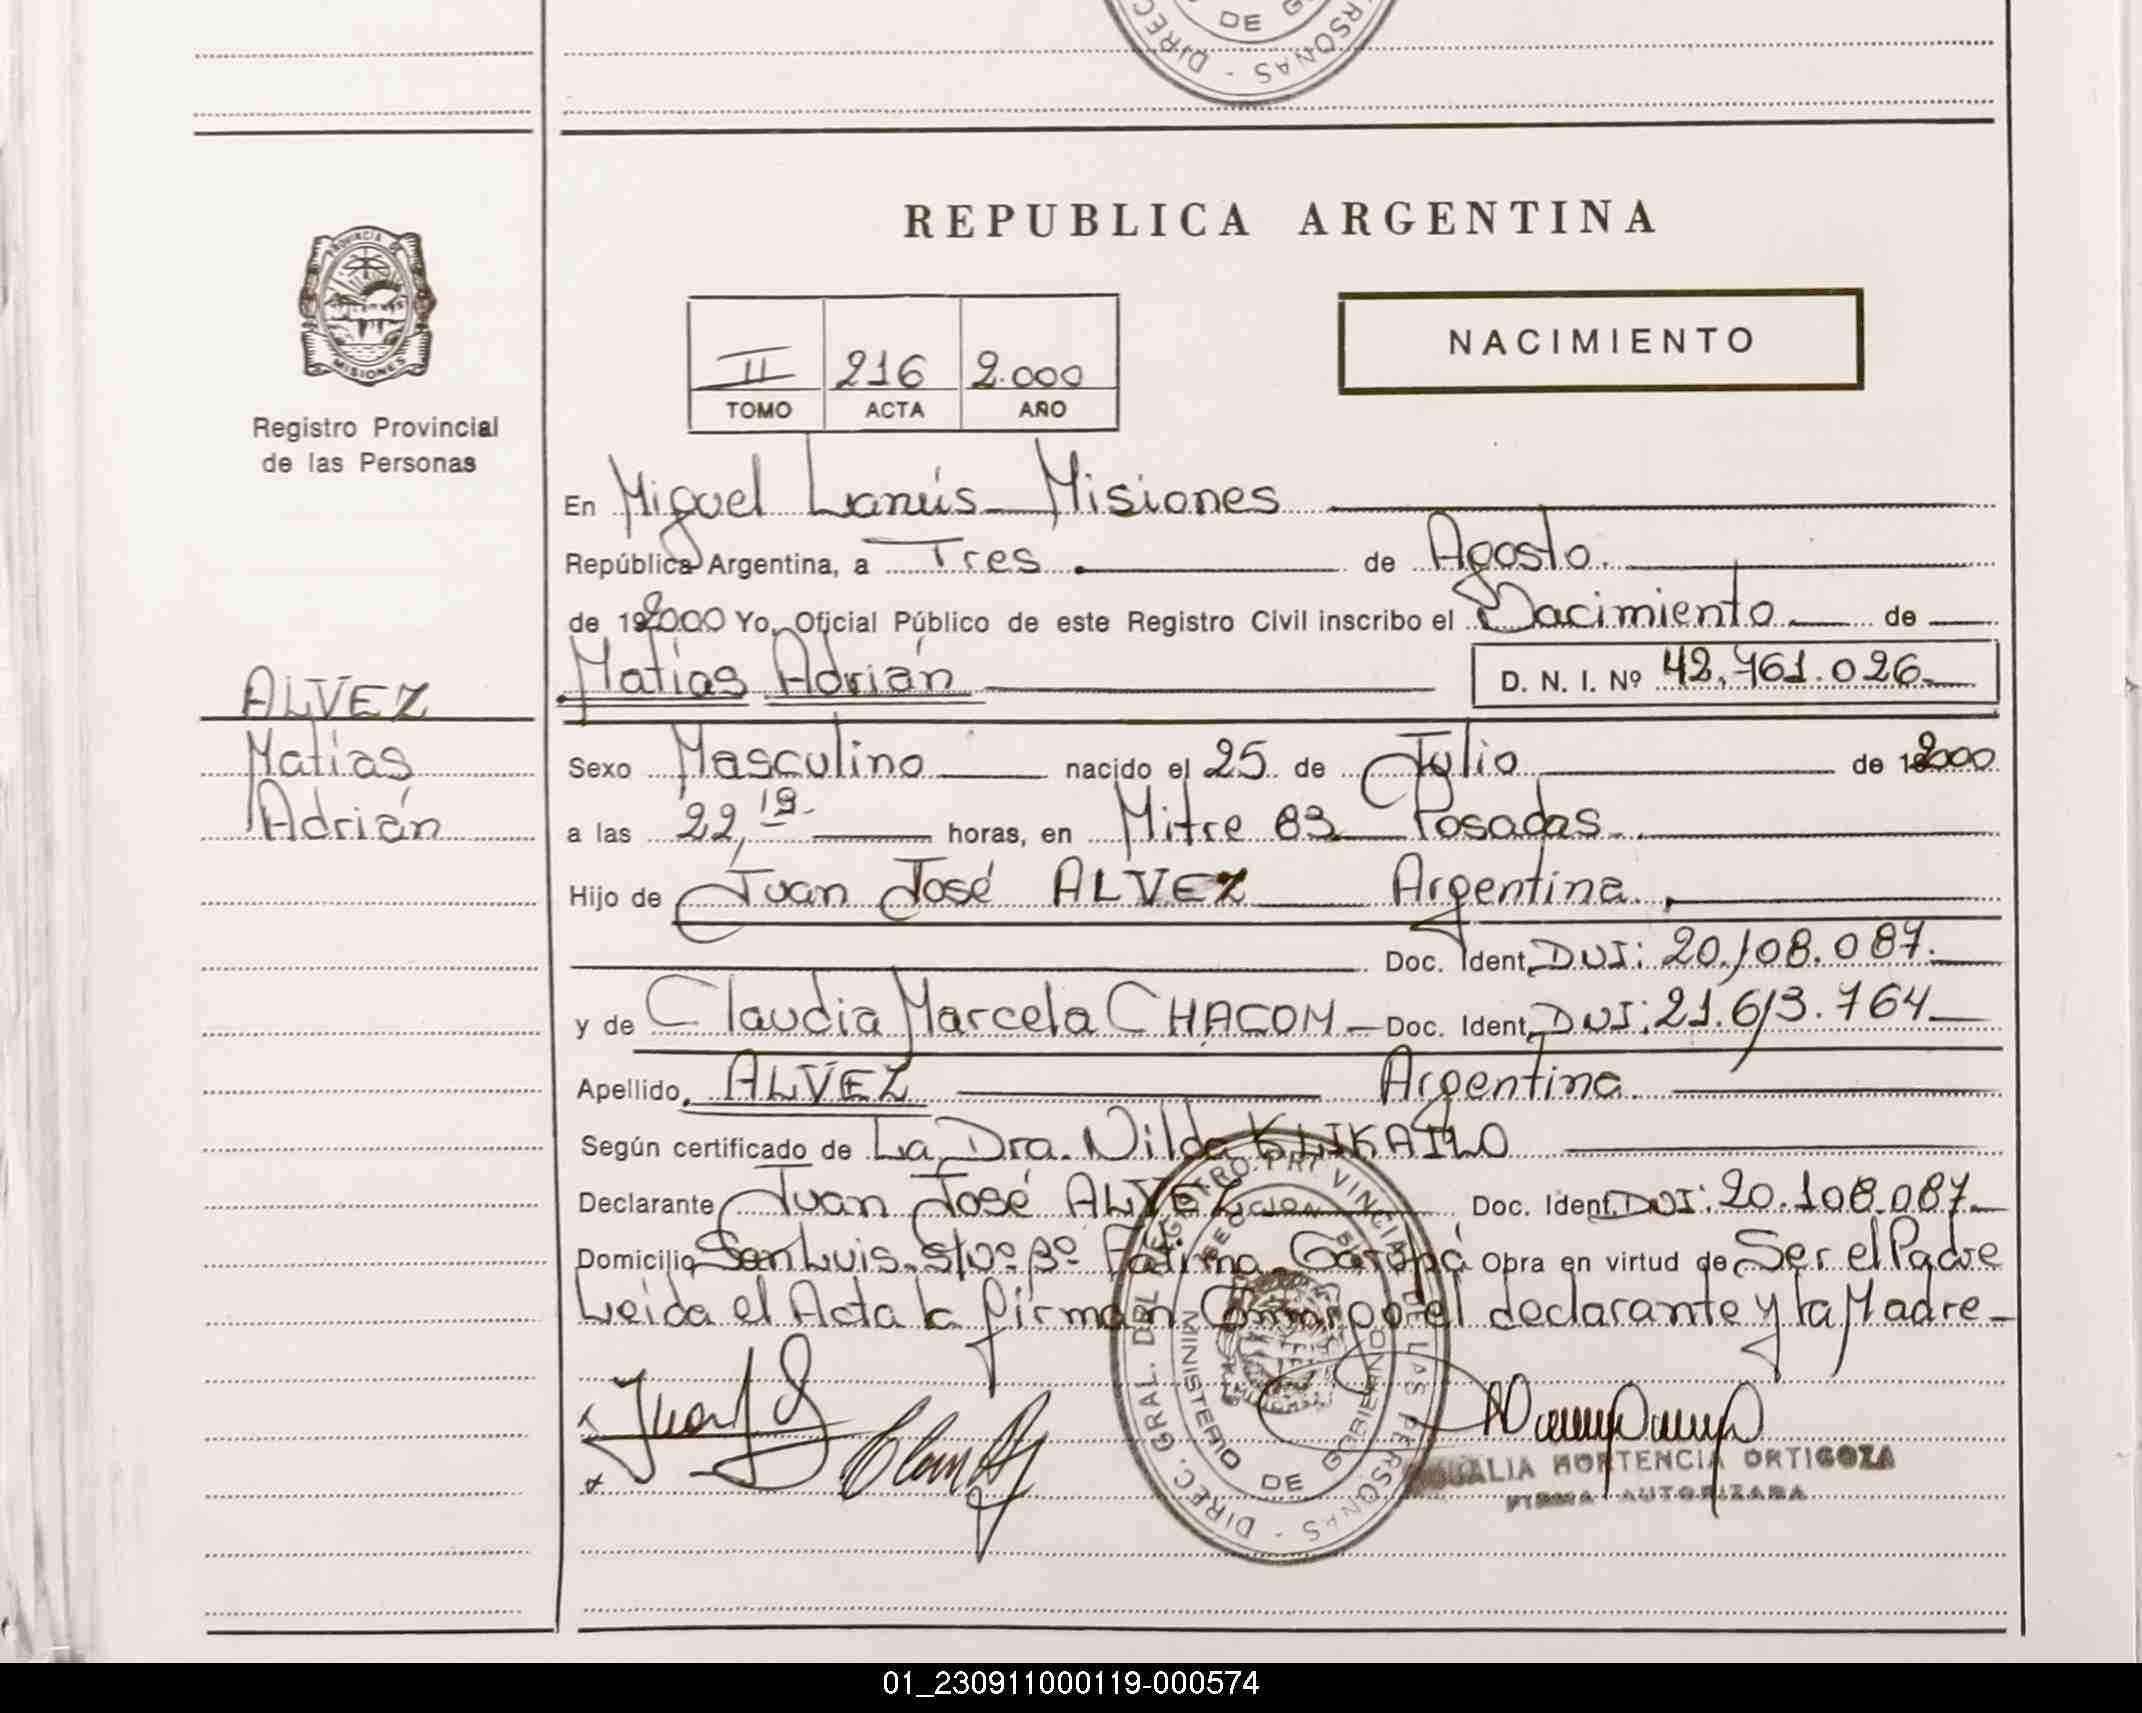 DE
DIREC
PERSONAS -
REPUBLICA ARGENTINA
PROVINCIA DE
MISIONES
Registro Provincial
de las Personas
NACIMIENTO
II 216 2.000
TOMO ACTA AÑO
En Miguel Lanús - Misiones
República Argentina, a Tres de Agosto.
de 192000 Yo, Oficial Público de este Registro Civil inscribo el Nacimiento de
Matías Adrián D. N. I. Nº 42.761.026
ALVEZ
Matías
Adrián
Sexo Masculino nacido el 25 de Julio de 192000
a las 22,19 horas, en Mitre 83 Posadas.
Hijo de Juan José ALVEZ Argentina.
Doc. Ident. DNI: 20.108.087.
y de Claudia Marcela CHACON - Doc. Ident. DNI: 21.613.764
Apellido, ALVEZ Argentina.
Según certificado de La Dra. Nilda
Declarante Juan José ALVEZ Doc. Ident. DNI: 20.108.087
Domicilio San Luis - S/Nº Bº Fátima - Garupá Obra en virtud de Ser el Padre
Leída el Acta la firman Conmigo el declarante y la Madre -
DIREC. GRAL. DEL REGISTRO PROVINCIAL DE LAS PERSONAS -
MINISTERIO DE GOBIERNO
HORTENCIA ORTIGOZA
FIRMA AUTORIZADA
01_230911000119-000574